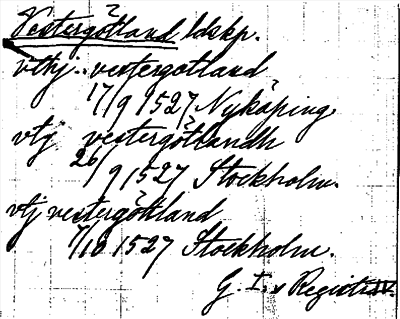 Vestergötland ldskp.
vthj. vestergotland
17/9 1527 Nyköping
vtj vestergötlandh
26/9 1527 Stockholm.
vtj vestergötland
7/10 1527 Stockholm.
G. I.s Registr.